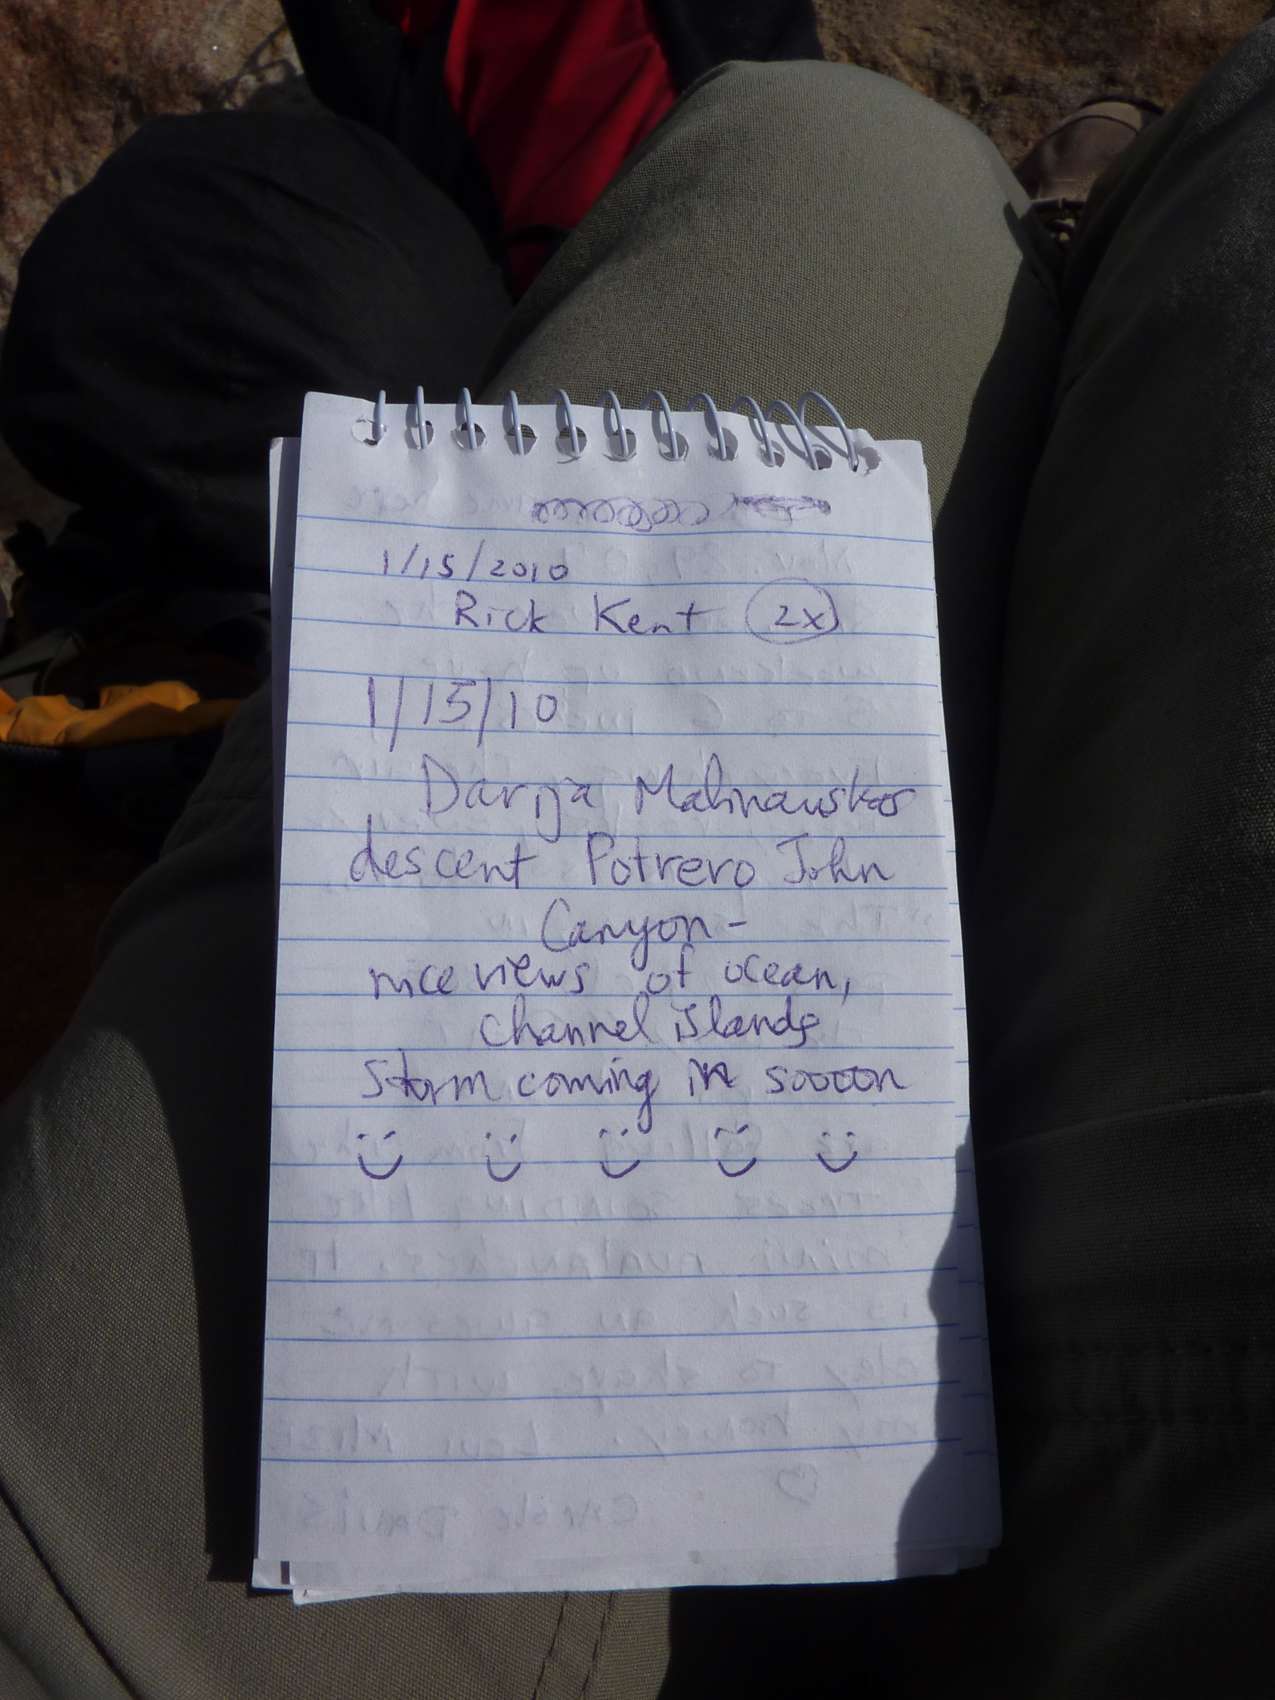 1/15/2010
Rick Kent 2x
1/15/10
Darija Malinauskas
descent Potrero John
Canyon -
nice views of ocean,
channel islands
storm coming in sooooon